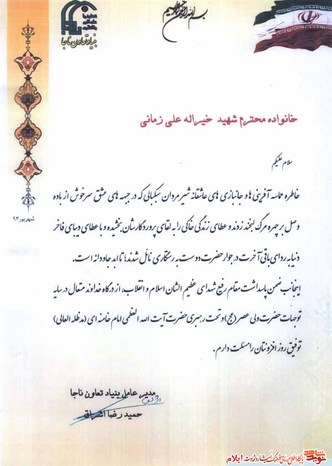 بسم الله الرحمن الرحیم
بنیاد تعاون ناجا
خانواده محترم شهید خیراله علی زمانی
سلام علیکم
خاطره حماسه آفرینی ها و جانبازی های عاشقانه شیرمردان سبکبالی که در جبهه های عشق سرخوش از باده
وصل بر چهره مرگ لبخند زدند و عطای زندگی خاکی را به لقای پروردگارشان بخشیده و با عطای دیبای فاخر
دنیا به ردای باقی آخرت در جوار حضرت دوست به رستگاری نائل شدند؛ تا ابد جاودانه است.
اینجانب ضمن پاسداشت مقام رفیع شهدای عظیم الشان اسلام و انقلاب، از درگاه خداوند متعال در سایه
توجهات حضرت ولی عصر (عج) و تحت رهبری حضرت آیت الله العظمی امام خامنه ای (مدظله العالی)
توفیق روز افزونتان را مسئلت دارم.
شهریور ۹۳
مدیر عامل بنیاد تعاون ناجا
حمید رضا اشراقی